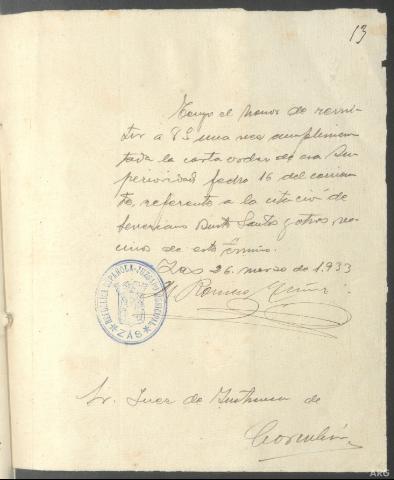 13
Tengo el honor de remi-
tir a VS una vez cumplimen-
tada la carta orden de esa Su-
perioridad fecha 16 del corrien-
te, referente a la citación de
Severiano Santos y otros ve-
cinos de este término.
Zas 26 marzo de 1.933
M. Romero
REPÚBLICA ESPAÑOLA - JUZGADO MUNICIPAL
ZAS
Sr. Juez de Instrucción de
Corcubión
ARG